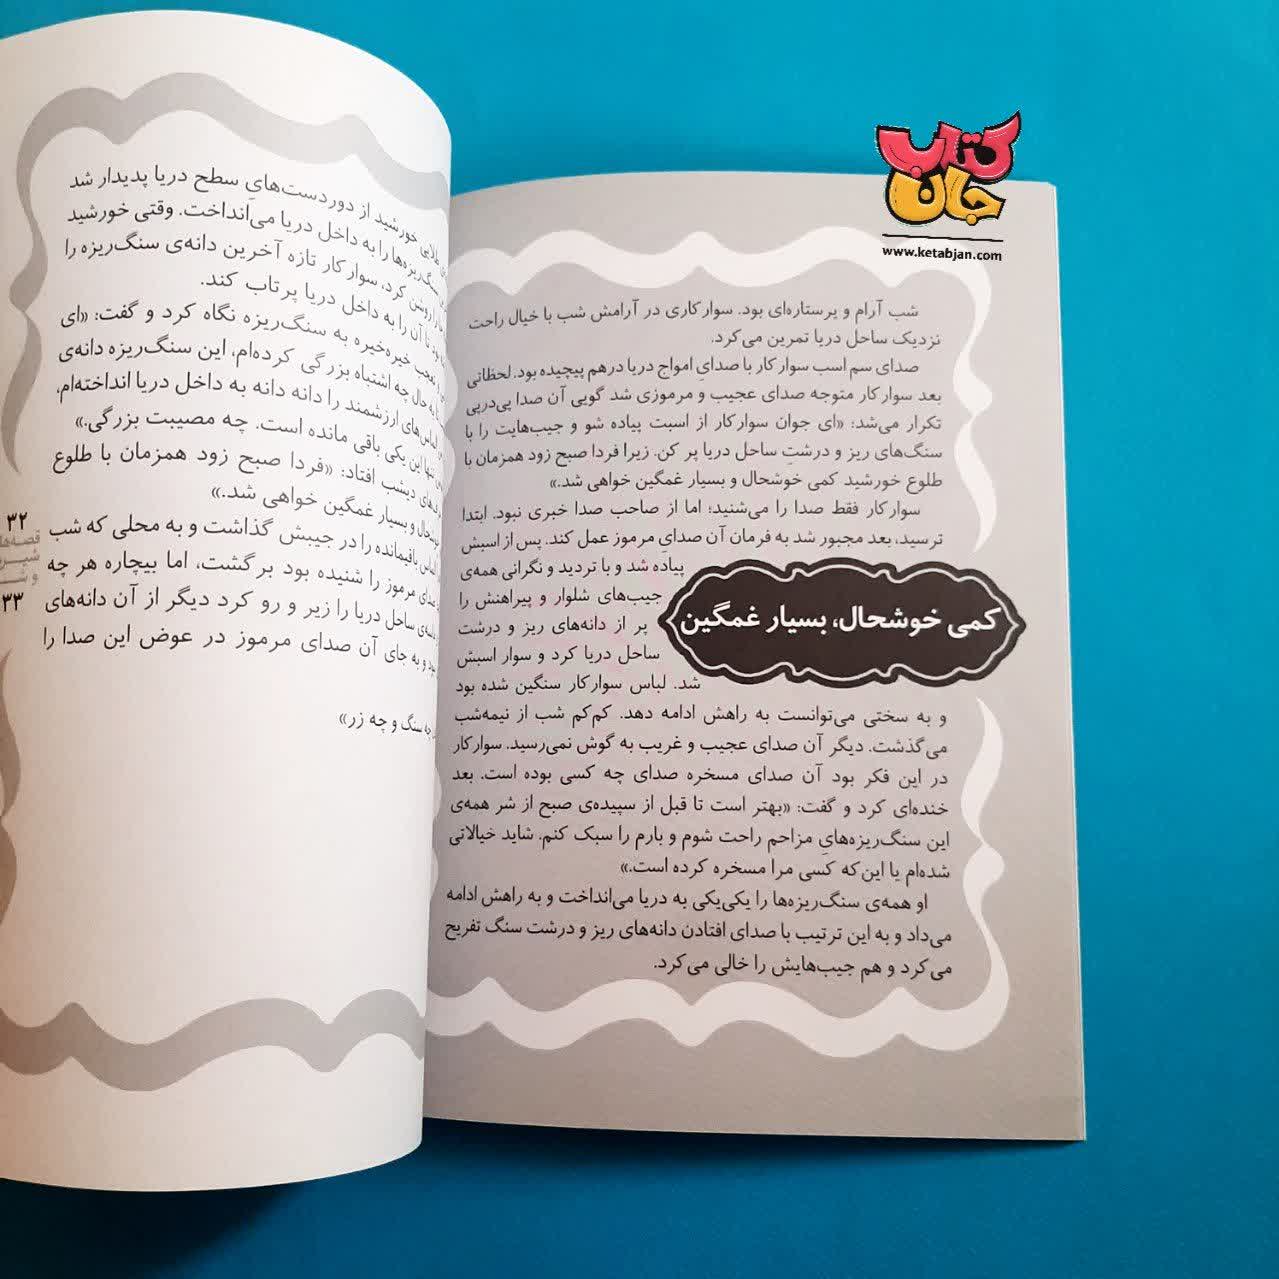 کتاب جان
www.ketabjan.com
شب آرام و پرستاره‌ای بود. سوارکاری در آرامش شب با خیال راحت
نزدیک ساحل دریا تمرین می‌کرد.
صدای سم اسب سوارکار با صدایِ امواج دریا درهم پیچیده بود. لحظاتی
بعد سوارکار متوجه صدای عجیب و مرموزی شد گویی آن صدا پی‌درپی
تکرار می‌شد: «ای جوان سوارکار از اسبت پیاده شو و جیب‌هایت را با
سنگ‌های ریز و درشتِ ساحل دریا پر کن. زیرا فردا صبح زود همزمان با
طلوع خورشید کمی خوشحال و بسیار غمگین خواهی شد.»
سوارکار فقط صدا را می‌شنید؛ اما از صاحب صدا خبری نبود. ابتدا
ترسید، بعد مجبور شد به فرمان آن صدایِ مرموز عمل کند. پس از اسبش
پیاده شد و با تردید و نگرانی همه‌ی
جیب‌های شلوار و پیراهنش را
پر از دانه‌های ریز و درشت
ساحل دریا کرد و سوار اسبش
شد. لباس سوارکار سنگین شده بود
کمی خوشحال، بسیار غمگین
و به سختی می‌توانست به راهش ادامه دهد. کم‌کم شب از نیمه‌شب
می‌گذشت. دیگر آن صدای عجیب و غریب به گوش نمی‌رسید. سوارکار
در این فکر بود آن صدای مسخره صدای چه کسی بوده است. بعد
خنده‌ای کرد و گفت: «بهتر است تا قبل از سپیده‌ی صبح از شر همه‌ی
این سنگ‌ریزه‌هایِ مزاحم راحت شوم و بارم را سبک کنم. شاید خیالاتی
شده‌ام یا این‌که کسی مرا مسخره کرده است.»
او همه‌ی سنگ‌ریزه‌ها را یکی‌یکی به دریا می‌انداخت و به راهش ادامه
می‌داد و به این ترتیب با صدای افتادن دانه‌های ریز و درشت سنگ تفریح
می‌کرد و هم جیب‌هایش را خالی می‌کرد.
طلایی خورشید از دوردست‌هایِ سطح دریا پدیدار شد
سنگ‌ریزه‌ها را به داخل دریا می‌انداخت. وقتی خورشید
را روشن کرد، سوارکار تازه آخرین دانه‌ی سنگ‌ریزه را
تا آن را به داخل دریا پرتاب کند.
تعجب خیره‌خیره به سنگ‌ریزه نگاه کرد و گفت: «ای
حال چه اشتباه بزرگی کرده‌ام، این سنگ‌ریزه دانه‌ی
الماس‌های ارزشمند را دانه دانه به داخل دریا انداخته‌ام،
تنها این یکی باقی مانده است. چه مصیبت بزرگی.»
دیشب افتاد: «فردا صبح زود همزمان با طلوع
و بسیار غمگین خواهی شد.»
الماس باقیمانده را در جیبش گذاشت و به محلی که شب
صدای مرموز را شنیده بود برگشت، اما بیچاره هر چه
ساحل دریا را زیر و رو کرد دیگر از آن دانه‌های
و به جای آن صدای مرموز در عوض این صدا را
چه سنگ و چه زر»
۳۲
۳۳